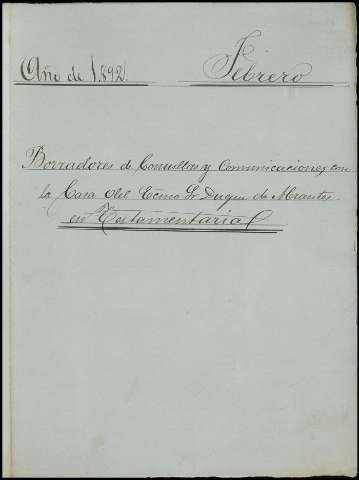 Año de 1.892. Febrero
Borradores de Consultas y Comunicaciones con
la Casa del Excmo Sr Duque de Abrantes
en Testamentaria